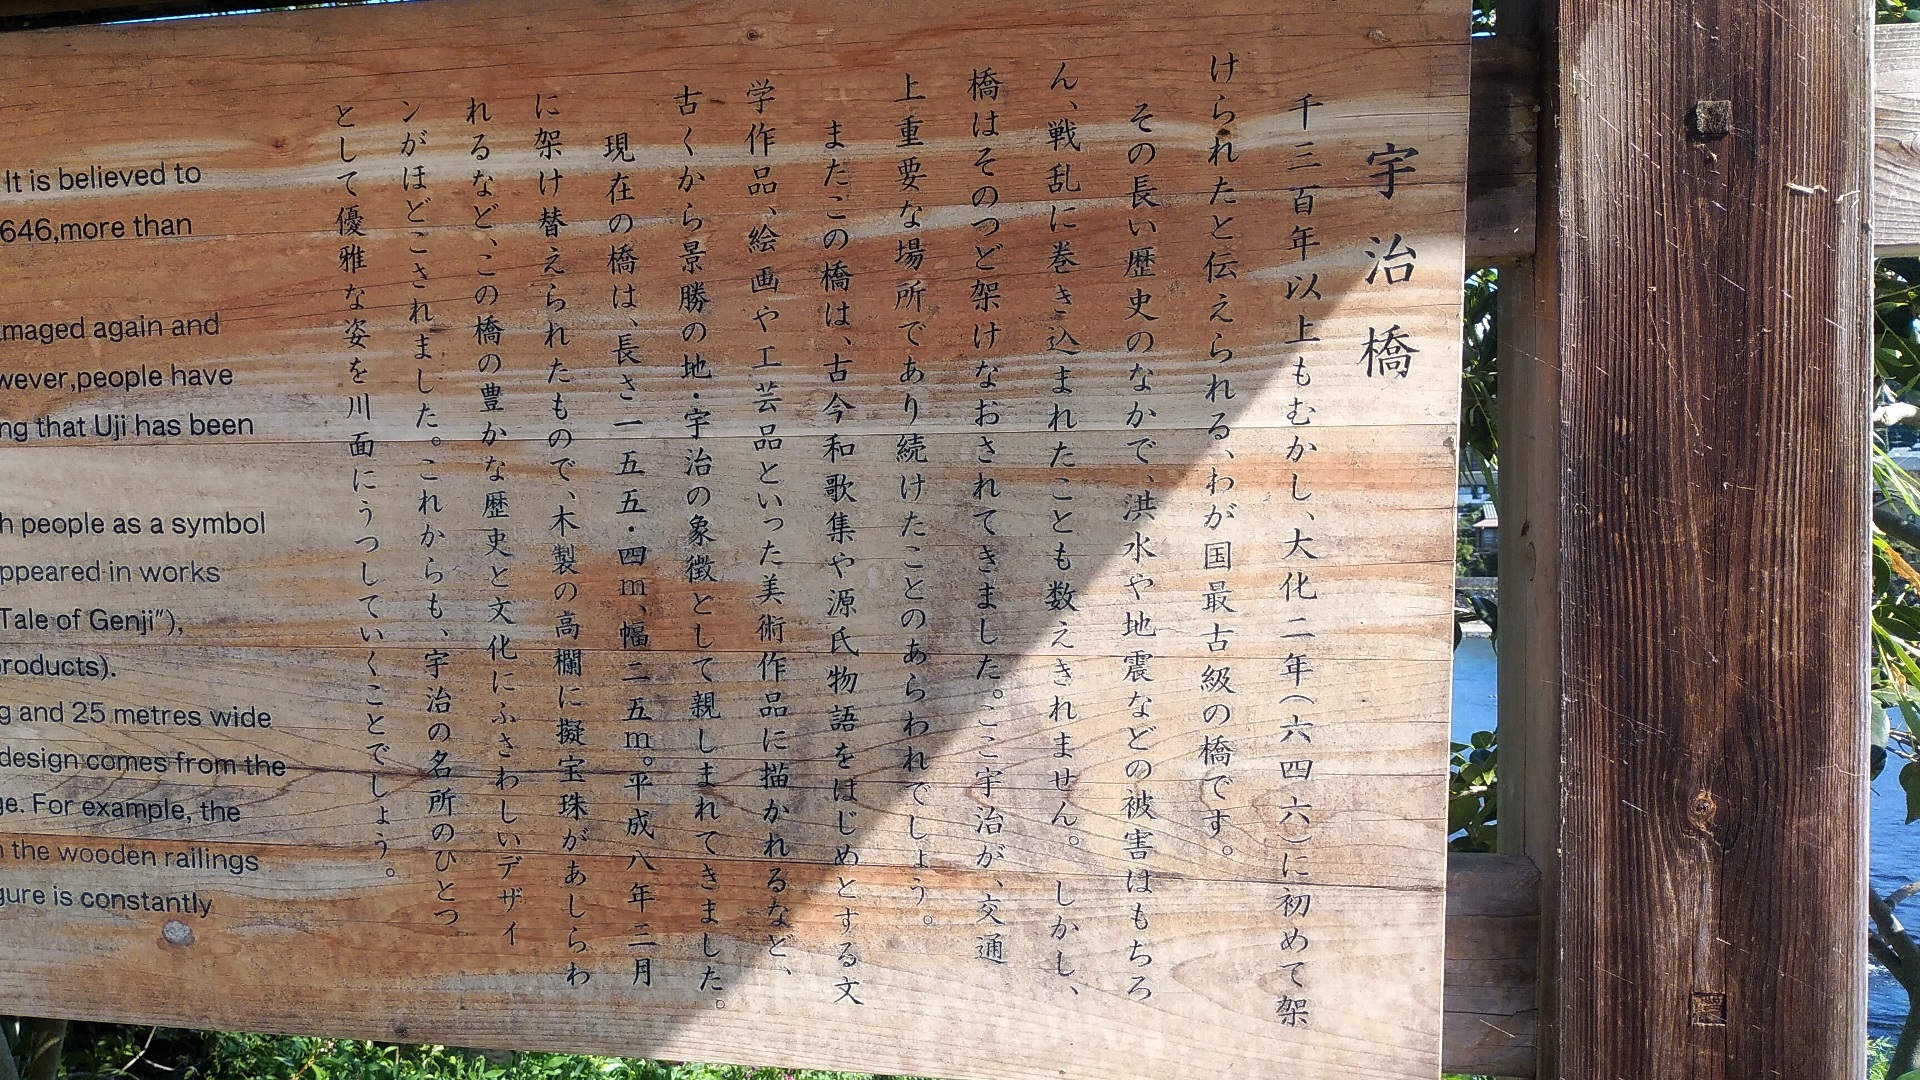 宇治橋
千三百年以上もむかし、大化二年(六四六)に初めて架
けられたと伝えられる、わが国最古級の橋です。
その長い歴史のなかで、洪水や地震などの被害はもちろ
ん、戦乱に巻き込まれたことも数えきれません。しかし、
橋はそのつど架けなおされてきました。ここ宇治が、交通
上重要な場所であり続けたことのあらわれでしょう。
またこの橋は、古今和歌集や源氏物語をはじめとする文
学作品、絵画や工芸品といった美術作品に描かれるなど、
古くから景勝の地・宇治の象徴として親しまれてきました。
現在の橋は、長さ一五五・四m、幅二五m。平成八年三月
に架け替えられたもので、木製の高欄に擬宝珠があしらわ
れるなど、この橋の豊かな歴史と文化にふさわしいデザイ
ンがほどこされました。これからも、宇治の名所のひとつ
として優雅な姿を川面にうつしていくことでしょう。
It is believed to
646,more than
maged again and
wever,people have
ng that Uji has been
h people as a symbol
ppeared in works
Tale of Genji"),
roducts).
g and 25 metres wide
design comes from the
ge. For example, the
n the wooden railings
gure is constantly